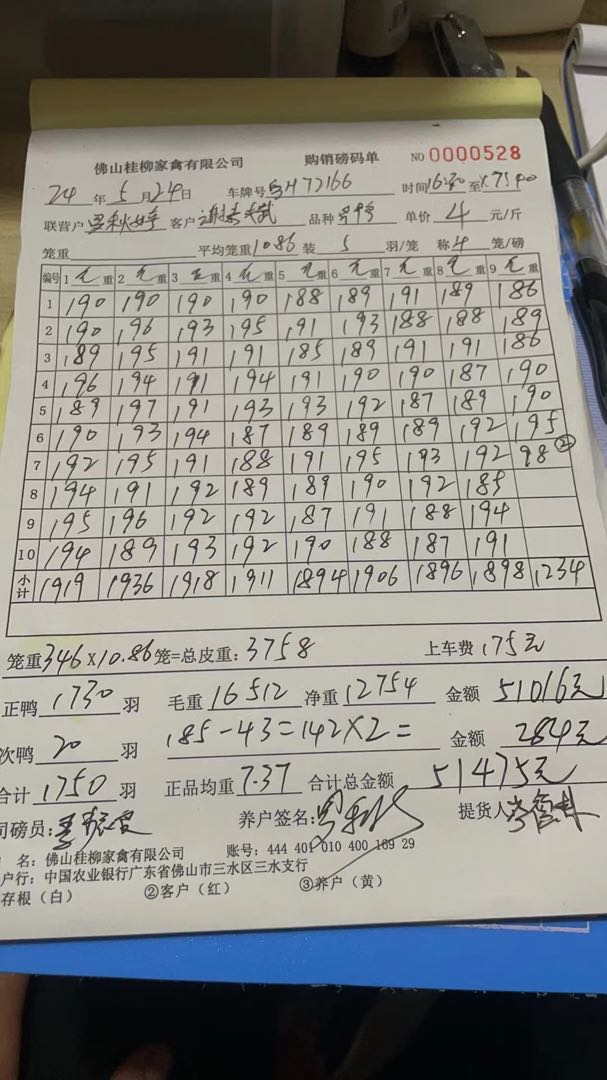 佛山桂柳家禽有限公司 购销磅码单 NO 0000528
24年5月24日 车牌号粤H72166 时间16:30至
联营户 罗秋婷 客户 品种 单价 4 元/斤
笼重 平均笼重10.86 装 5 羽/笼 称4 笼/磅
编号 1毛重 2毛重 3毛重 4毛重 5毛重 6毛重 7毛重 8毛重 9毛重
1 190 190 190 190 188 189 191 189 186
2 190 196 193 195 191 193 188 188 189
3 189 195 191 191 185 189 191 191 186
4 196 194 191 194 191 190 190 187 190
5 189 197 191 193 193 192 187 189 190
6 190 193 194 187 189 189 189 192 195
7 192 195 191 188 191 195 193 192 98②
8 194 191 192 189 189 190 192 185
9 195 196 192 192 187 191 188 194
10 194 189 193 192 190 188 187 191
小计 1919 1936 1918 1911 1894 1906 1896 1898 1234
笼重346×10.86笼=总皮重:3758 上车费175元
正鸭1730羽 毛重16512 净重12754 金额51016元
次鸭20羽 185-43=142×2= 金额284元
合计1750羽 正品均重7.37 合计总金额51475元
司磅员: 养户签名: 提货人
名:佛山桂柳家禽有限公司 账号:444 401 010 400 169 29
户行:中国农业银行广东省佛山市三水区三水支行
存根(白) ②客户(红) ③养户(黄)